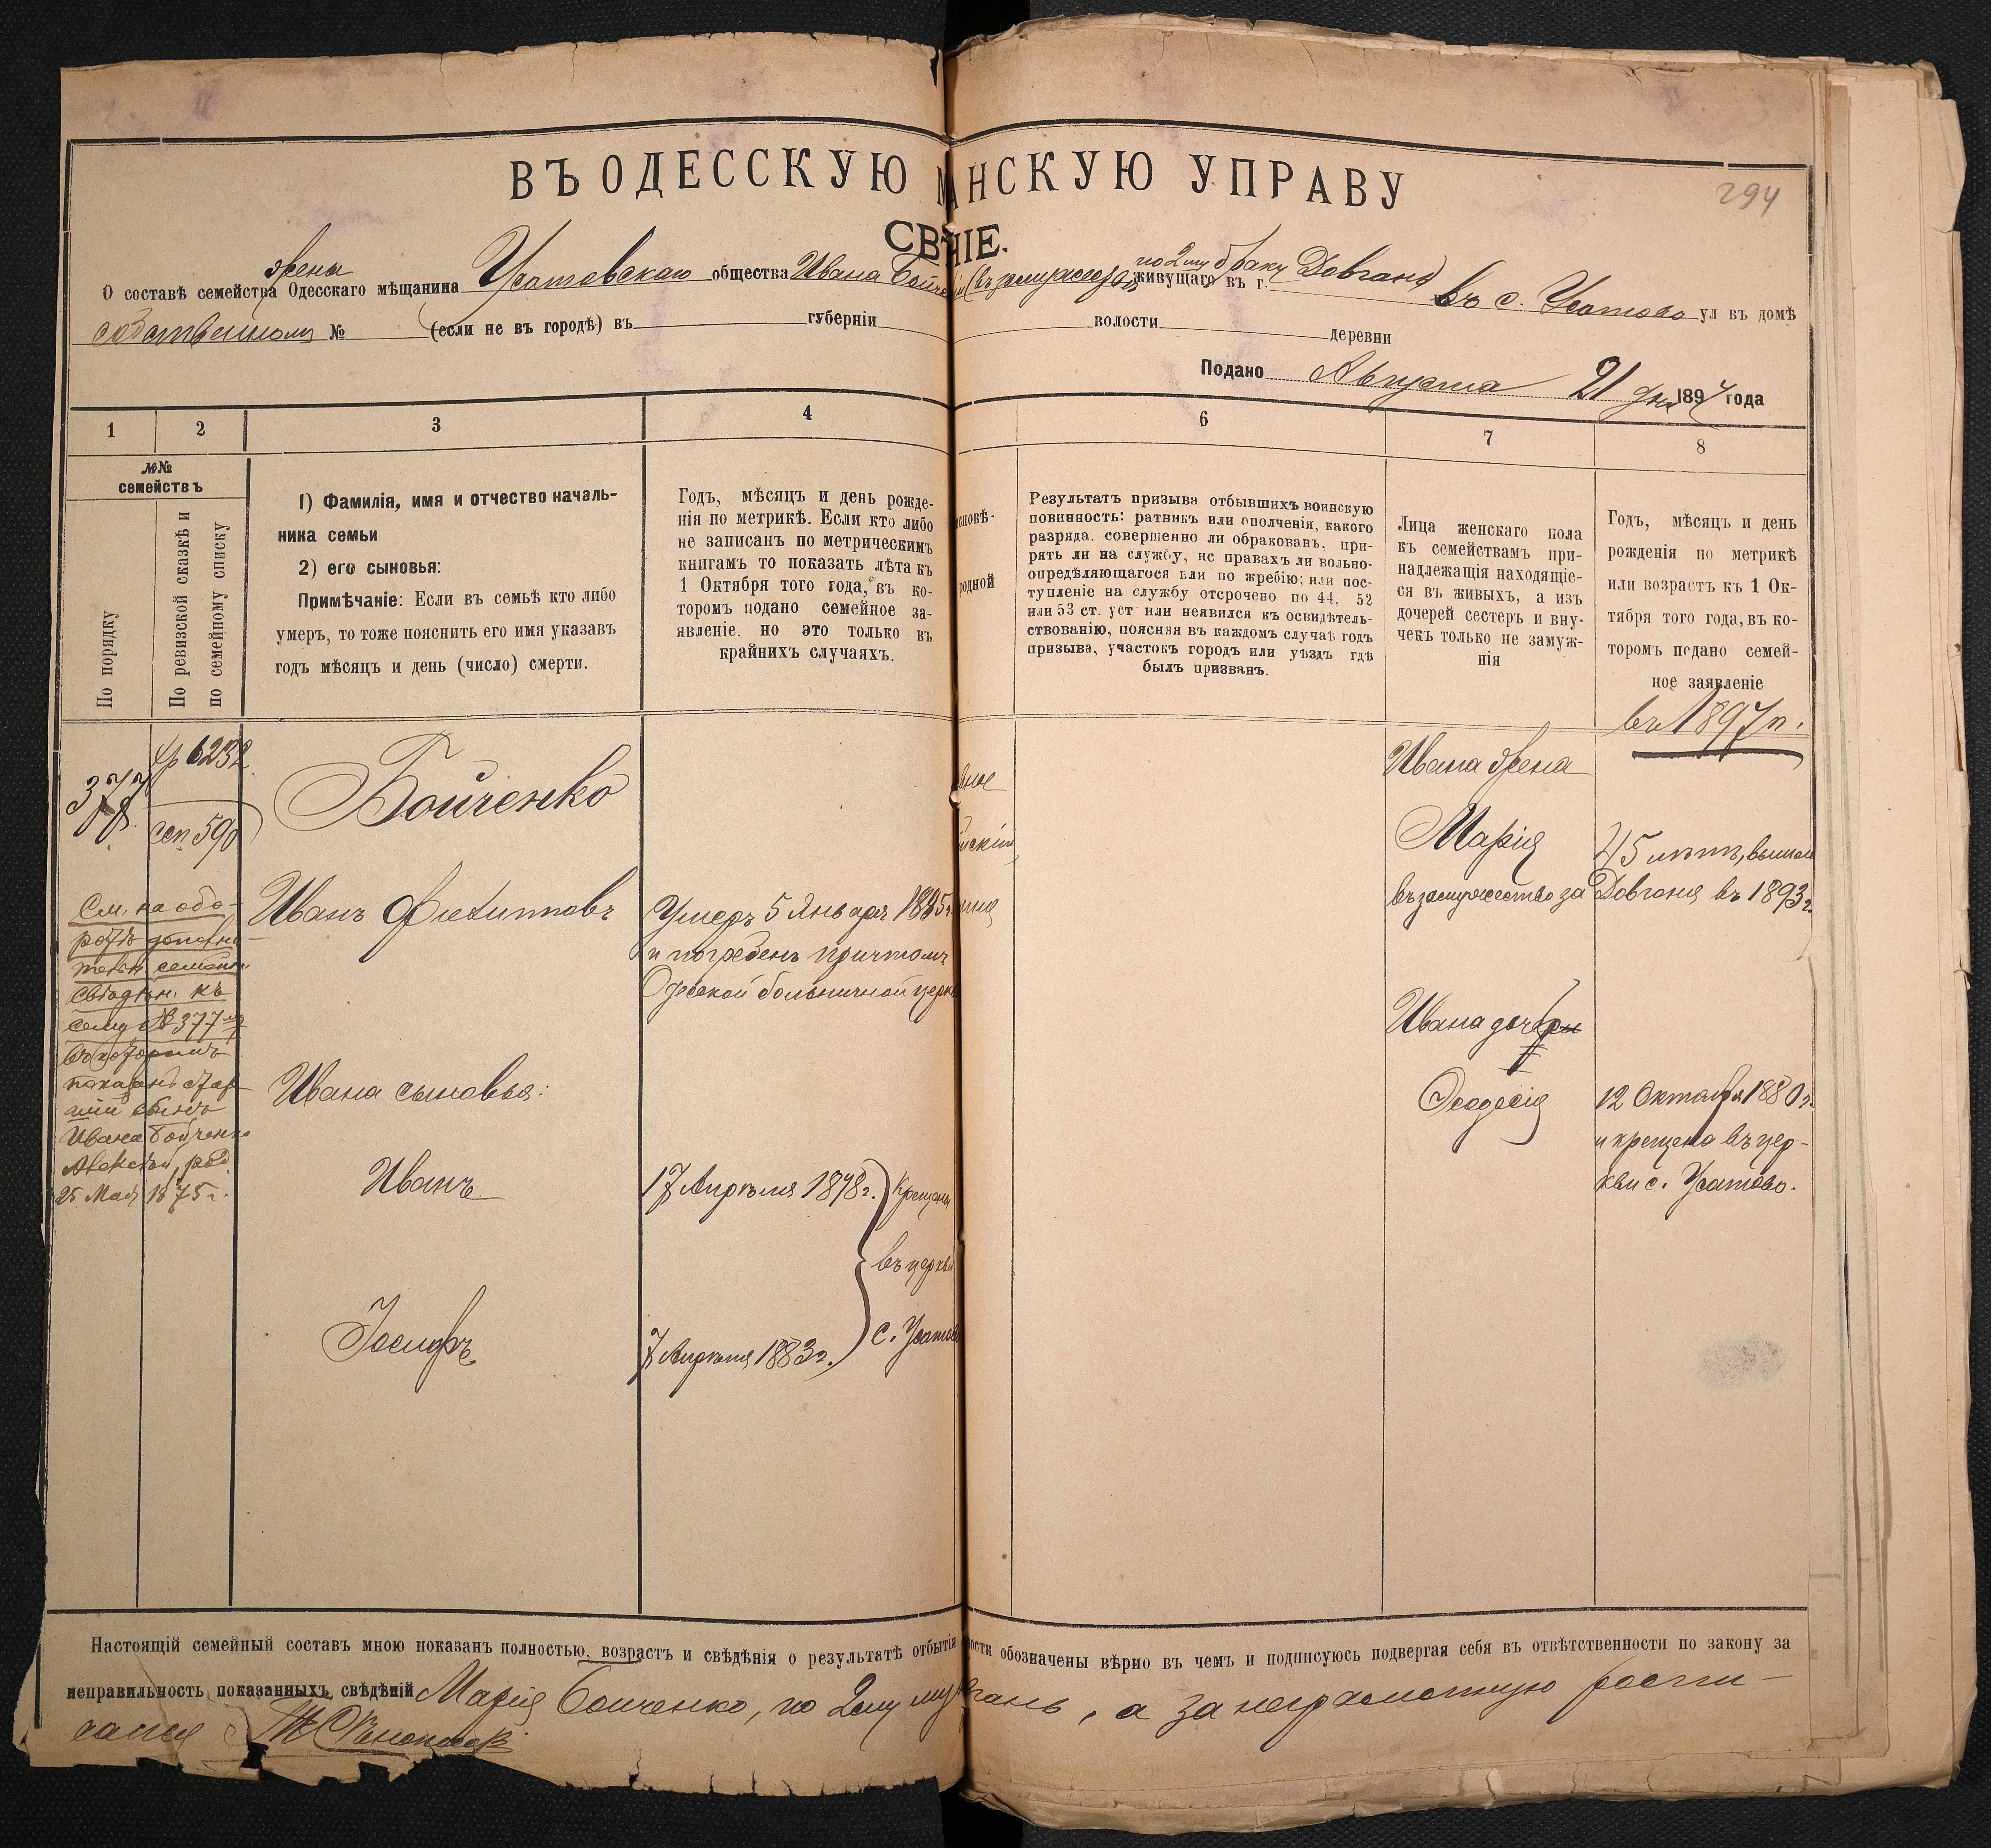 294
ВЪ ОДЕССКУЮ НСКУЮ УПРАВУ
СВ НІЕ.
жена по 2му браку Довгань
О составѣ семейства Одесскаго мѣщанина Усатовскаго общества Ивана живущаго въ г. въ с. Усатово ул въ домѣ
собственномъ № (если не въ городѣ) въ губерніи волости деревни
Подано Августа 21 дня 1897 года
1 2 3 4 6 7 8
№№ семействъ
По порядку
По ревизской сказкѣ и по семейному списку
1) Фамилія, имя и отчество началь-
ника семьи
2) его сыновья:
Примѣчаніе: Если въ семьѣ кто либо
умеръ, то тоже пояснить его имя указавъ
годъ мѣсяцъ и день (число) смерти.
Годъ, мѣсяцъ и день рожде-
нія по метрикѣ. Если кто либо
не записанъ по метрическимъ
книгамъ то показать лѣта къ
1 Октября того года, въ ко-
торомъ подано семейное за-
явленіе. но это только въ
крайнихъ случаяхъ.
исповѣ-
родной
Результатъ призыва отбывшихъ воинскую
повинность: ратникъ или ополченія, какого
разряда. совершенно ли обракованъ. при-
рять ли на службу, нс правахъ ли вольно-
опредѣляющагося или по жребію; или пос-
тупленіе на службу отсрочено по 44, 52
или 53 ст. уст или неявился къ освидѣтель-
ствованію, поясняя въ каждомъ случаѣ годъ
призыва, участокъ городъ или уѣздъ гдѣ
былъ призванъ.
Лица женскаго пола
къ семействамъ при-
надлежащія находящіе-
ся въ живыхъ, а изъ
дочерей сестеръ и вну-
чекъ только не замуж-
нія
Годъ, мѣсяцъ и день
рожденія по метрикѣ
или возрастъ къ 1 Ок-
тября того года, въ ко-
торомъ подано семей-
ное заявленіе
въ 1897 г.
377
6232
сп 590
Бойченко
Ивана жена
Марія
45 лѣтъ, вышла
въ замужество за Довганя въ 1893 г.
Иванъ Филипповъ
Умеръ 5 Января 1885 г.
и погребенъ причтомъ
Одесской больничной церкв
См. на обо-
ротѣ дополни-
тельн. семейн.
свѣдѣн. къ
сему № 377му
въ которомъ
показанъ стар-
шій сынъ
Ивана Бойченко
Алексѣй, род.
25 Мая 1875 г.
Ивана сыновья:
Иванъ
17 Апрѣля 1878 г.
Крещены
въ церкви
с. Усатово
Іосифъ
7 Апрѣля 1883 г.
Ивана дочери
Ѳеодосія
12 Октября 1880 г.
и крещена въ цер-
кви с. Усатово.
Настоящій семейный составъ мною показанъ полностью, возрастъ и свѣдѣнія о результатѣ отбытія ости обозначены вѣрно въ чемъ и подписуюсь подвергая себя въ отвѣтственности по закону за
неправильность показанныхъ свѣдѣній Марія Бойченко, по 2му му гань, а за неграмотную роспи-
сался